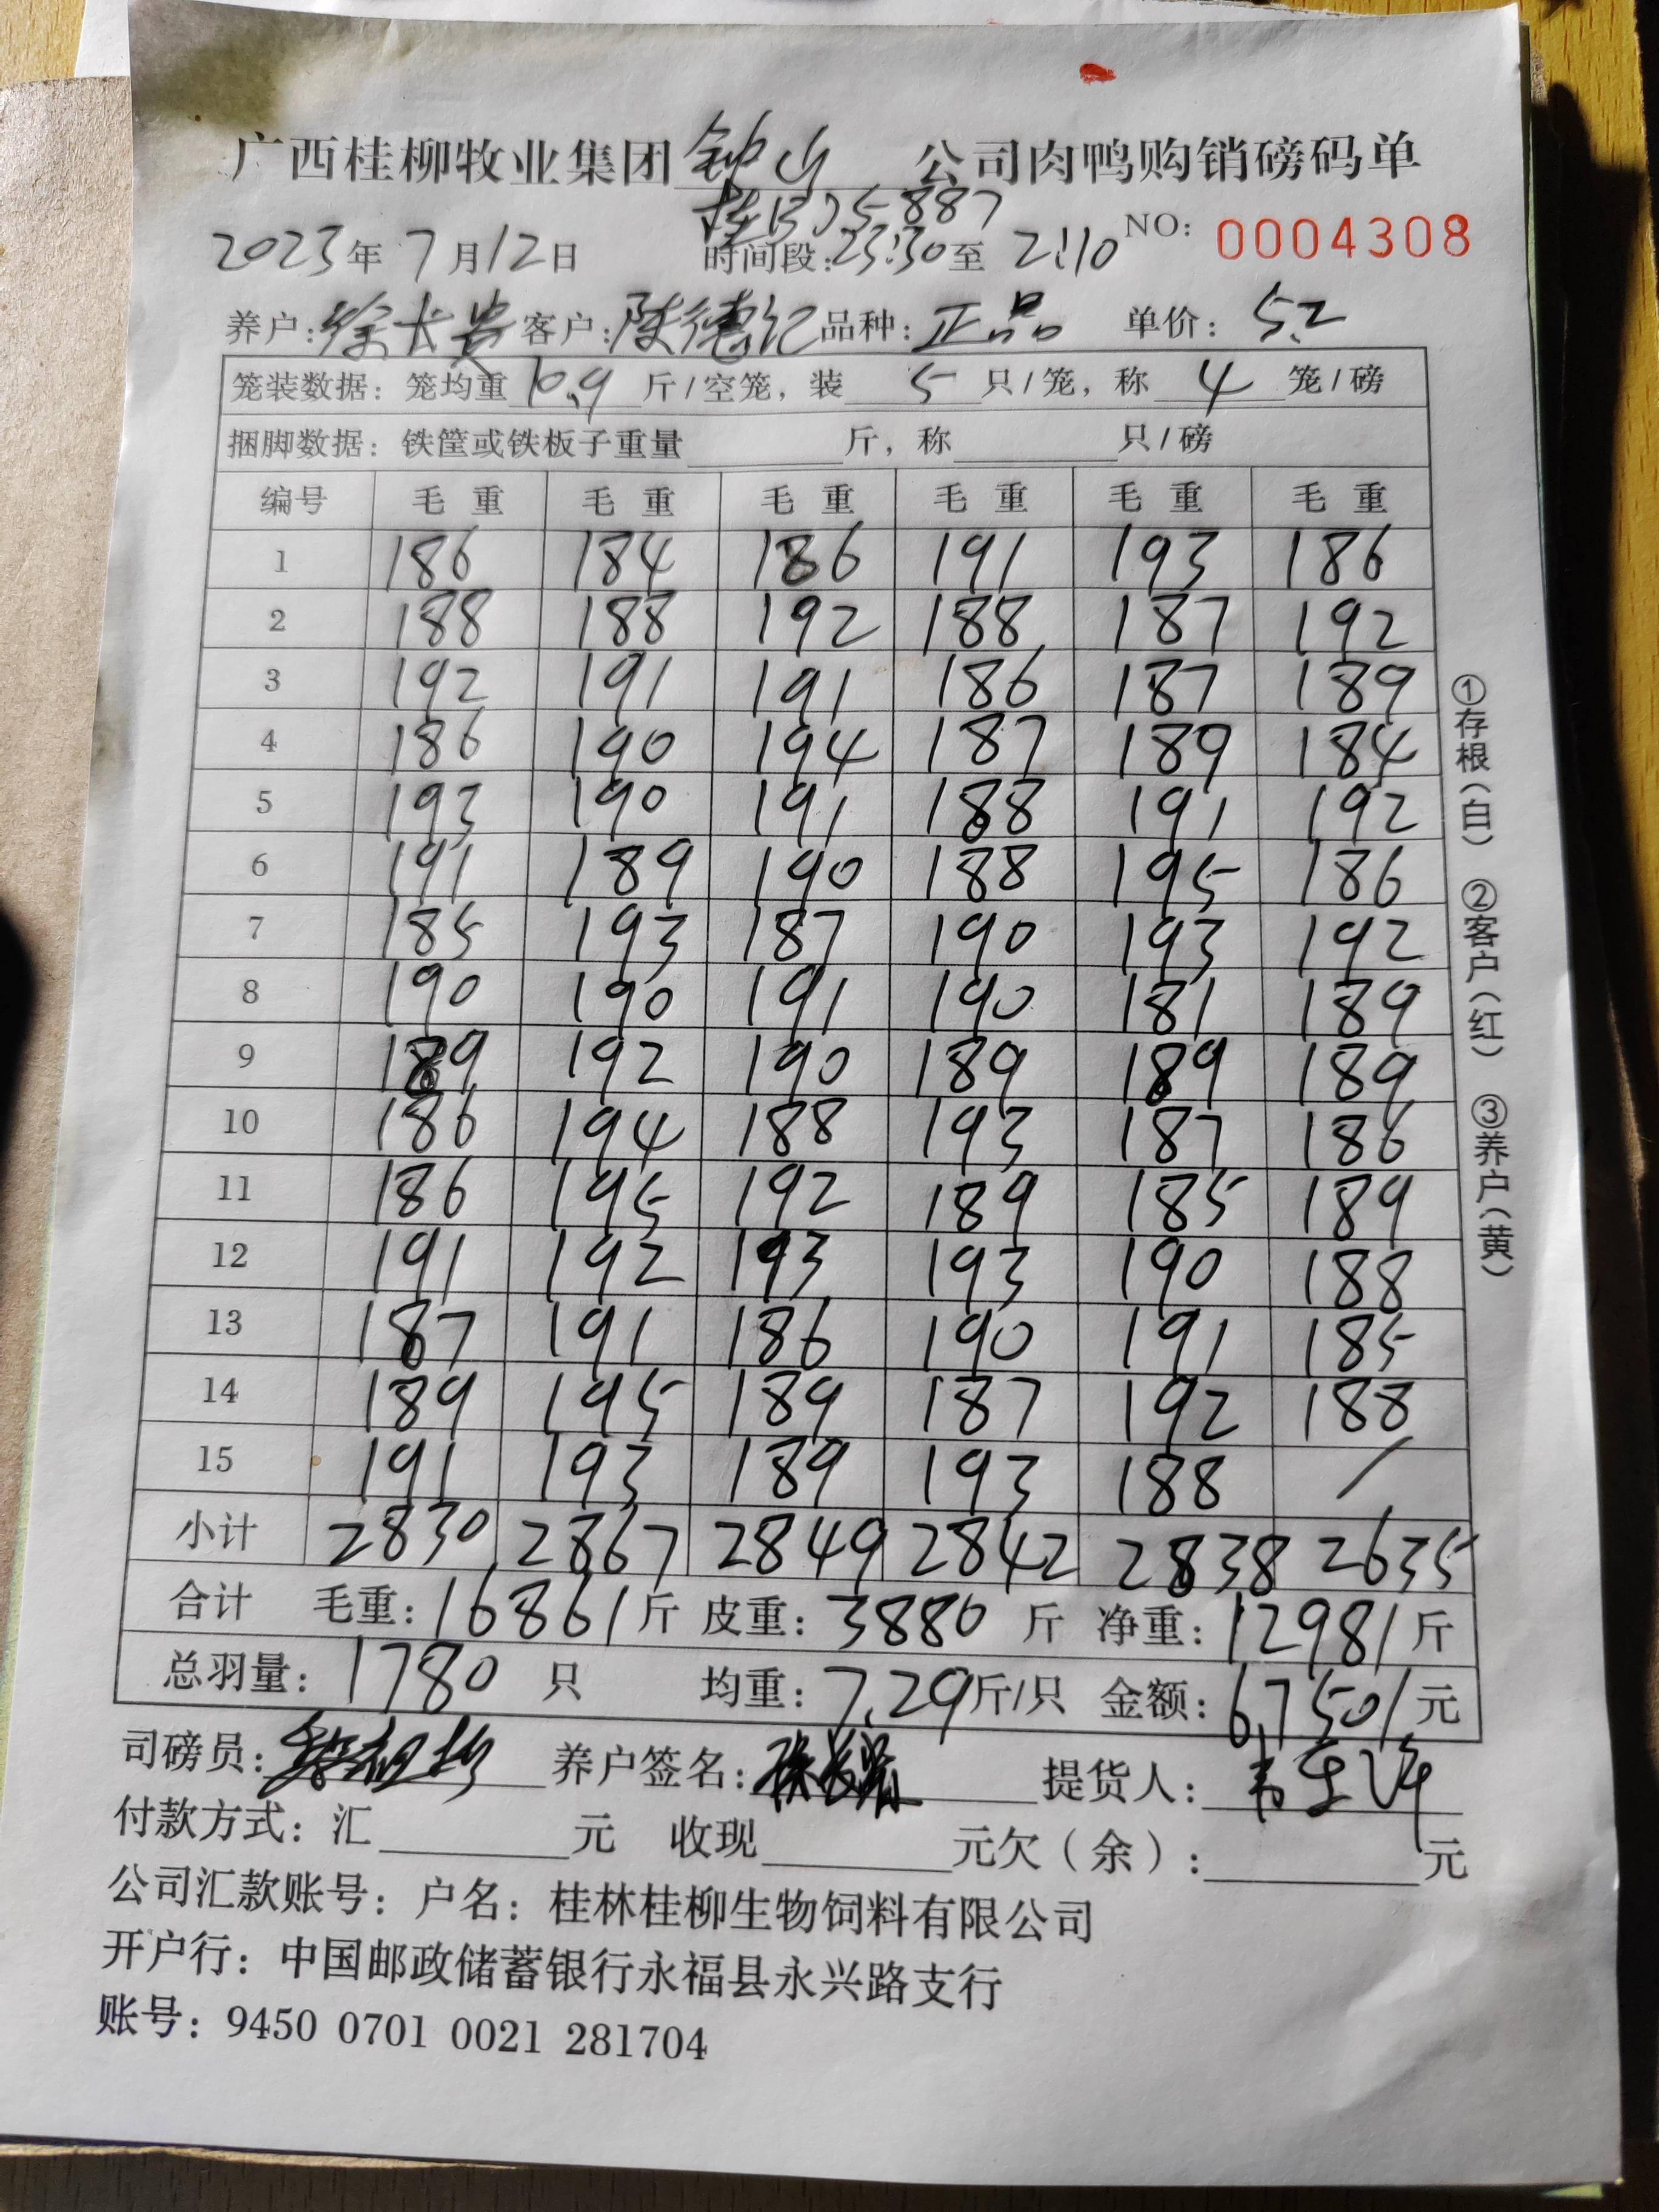 广西桂柳牧业集团 钟山 公司肉鸭购销磅码单
桂 5887
2023年 7月12日 时间段:23:30至 2:10 NO: 0004308
养户:徐长贵 客户:陈德纪 品种:正品 单价: 5.2
笼装数据: 笼均重 10.9 斤/空笼, 装 5 只/笼, 称 4 笼/磅
捆脚数据: 铁筐或铁板子重量 斤, 称 只/磅
编号 毛重 毛重 毛重 毛重 毛重 毛重
1 186 184 186 191 193 186
2 188 188 192 188 187 192
3 192 191 191 186 187 189
4 186 190 194 187 189 184
5 193 190 191 188 191 192
6 191 189 190 188 195 186
7 185 193 187 190 193 192
8 190 190 191 190 181 189
9 189 192 190 189 189 189
10 186 194 188 193 187 186
11 186 195 192 189 185 189
12 191 192 193 193 190 188
13 187 191 186 190 191 185
14 189 195 189 187 192 188
15 191 193 189 193 188 /
小计 2830 2867 2849 2842 2838 2635
合计 毛重:16861斤 皮重:3880 斤 净重:12981斤
总羽量:1780 只 均重:7.29斤/只 金额:67501元
司磅员: 养户签名: 提货人:
付款方式: 汇 元 收现 元欠(余): 元
公司汇款账号: 户名: 桂林桂柳生物饲料有限公司
开户行: 中国邮政储蓄银行永福县永兴路支行
账号: 9450 0701 0021 281704
①存根(白) ②客户(红) ③养户(黄)